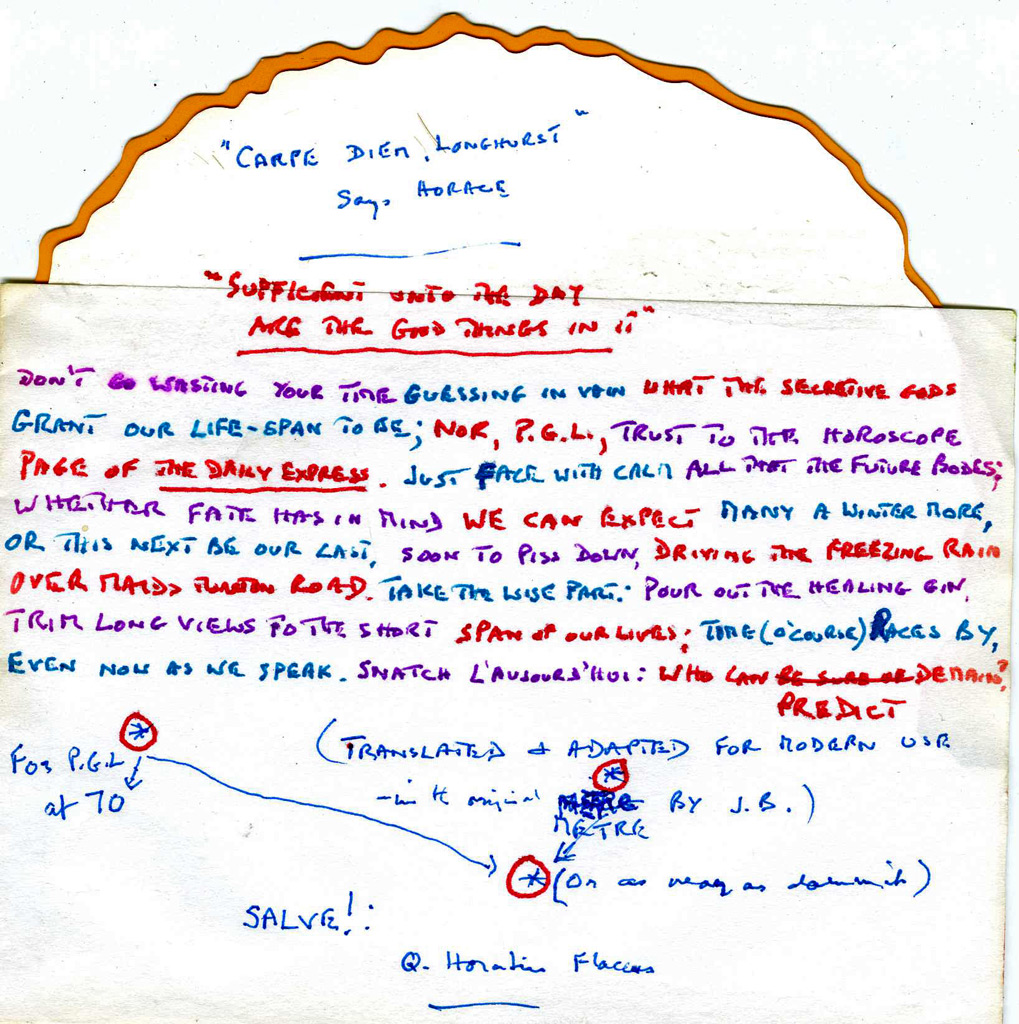 "CARPE DIEM, LONGHURST"
Says HORACE
"SUFFICIENT UNTO THE DAY
ARE THE GOOD THINGS IN IT"
DON'T GO WASTING YOUR TIME GUESSING IN VAIN WHAT THE SECRETIVE GODS
GRANT OUR LIFE-SPAN TO BE; NOR, P.G.L., TRUST TO THE HOROSCOPE
PAGE OF THE DAILY EXPRESS. JUST FACE WITH CALM ALL THAT THE FUTURE BODES;
WHETHER FATE HAS IN MIND WE CAN EXPECT MANY A WINTER MORE,
OR THIS NEXT BE OUR LAST, SOON TO PISS DOWN, DRIVING THE FREEZING RAIN
OVER ROAD. TAKE THE WISE PART: POUR OUT THE HEALING GIN,
TRIM LONG VIEWS TO THE SHORT SPAN OF OUR LIVES; TIME (O'COURSE) RACES BY,
EVEN NOW AS WE SPEAK. SNATCH L'AUJOURD'HUI: WHO CAN BE SURE OF DEMAIN?
PREDICT
* (TRANSLATED & ADAPTED FOR MODERN USE
FOR P.G.L. *
at 70 - in the original BY J.B.)
METRE
* (Or as near as dammit)
SALVE!:
Q. Horatius Flaccus